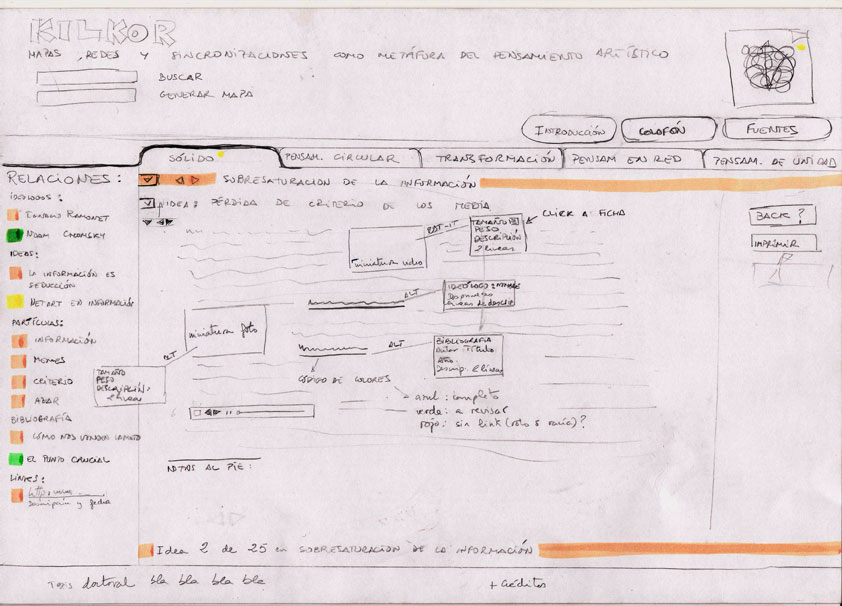 KILKOR
MAPAS, REDES Y SINCRONIZACIONES COMO METÁFORA DEL PENSAMIENTO ARTÍSTICO
BUSCAR
GENERAR MAPA
INTRODUCCIÓN
COLOFÓN
FUENTES
SÓLIDO
PENSAM. CIRCULAR
TRANSFORMACIÓN
PENSAM EN RED
PENSAM. DE UNIDAD
RELACIONES:
IDEÓLOGOS:
IGNACIO RAMONET
NOAM CHOMSKY
IDEAS:
LA INFORMACIÓN ES
SEDUCCIÓN
NETART EN INFORMACIÓN
PARTÍCULAS:
INFORMACIÓN
MEMES
CRITERIO
AZAR
BIBLIOGRAFÍA
CÓMO NOS VENDEN LA MOTO
EL PUNTO CRUCIAL
LINKS:
Descripción y fecha
SOBRESATURACION DE LA INFORMACIÓN
IDEA: PÉRDIDA DE CRITERIO DE LOS MEDIA
miniatura video
TAMAÑO
PESO
DESCRIPCIÓN
2 lineas
CLICK A FICHA
BACK?
IMPRIMIR
ALT
IDEÓLOGO: NOMBRE
miniatura foto
ALT
TAMAÑO
PESO
DESCRIPCIÓN:
2 lineas
ALT
BIBLIOGRAFIA
Autor Título
año.
Descrip. 2 lineas
CÓDIGO DE COLORES
azul: completo
verde: a revisar
rojo: sin link (roto o vacío)?
NOTAS AL PIE:
Idea 2 de 25 en SOBRESATURACION DE LA INFORMACIÓN
Tesis doctoral bla bla bla bla
+ Créditos